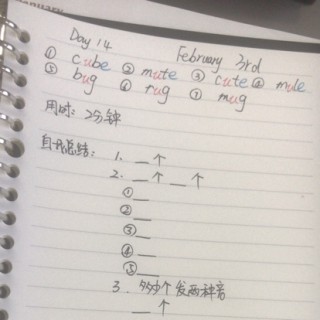 Day 14 February 3rd
① cube ② mute ③ cute ④ mule
⑤ bug ⑥ rug ⑦ mug
用时: 2分钟
自我总结: 1. __个
2. __个__个
① __
② __
③ __
④ __
⑤ __
3. 个发两种音
__个